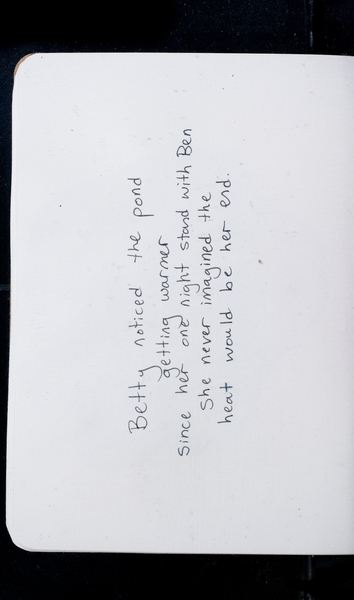 Betty noticed the pond
getting warmer
since her one night stand with Ben
She never imagined the
heat would be her end.